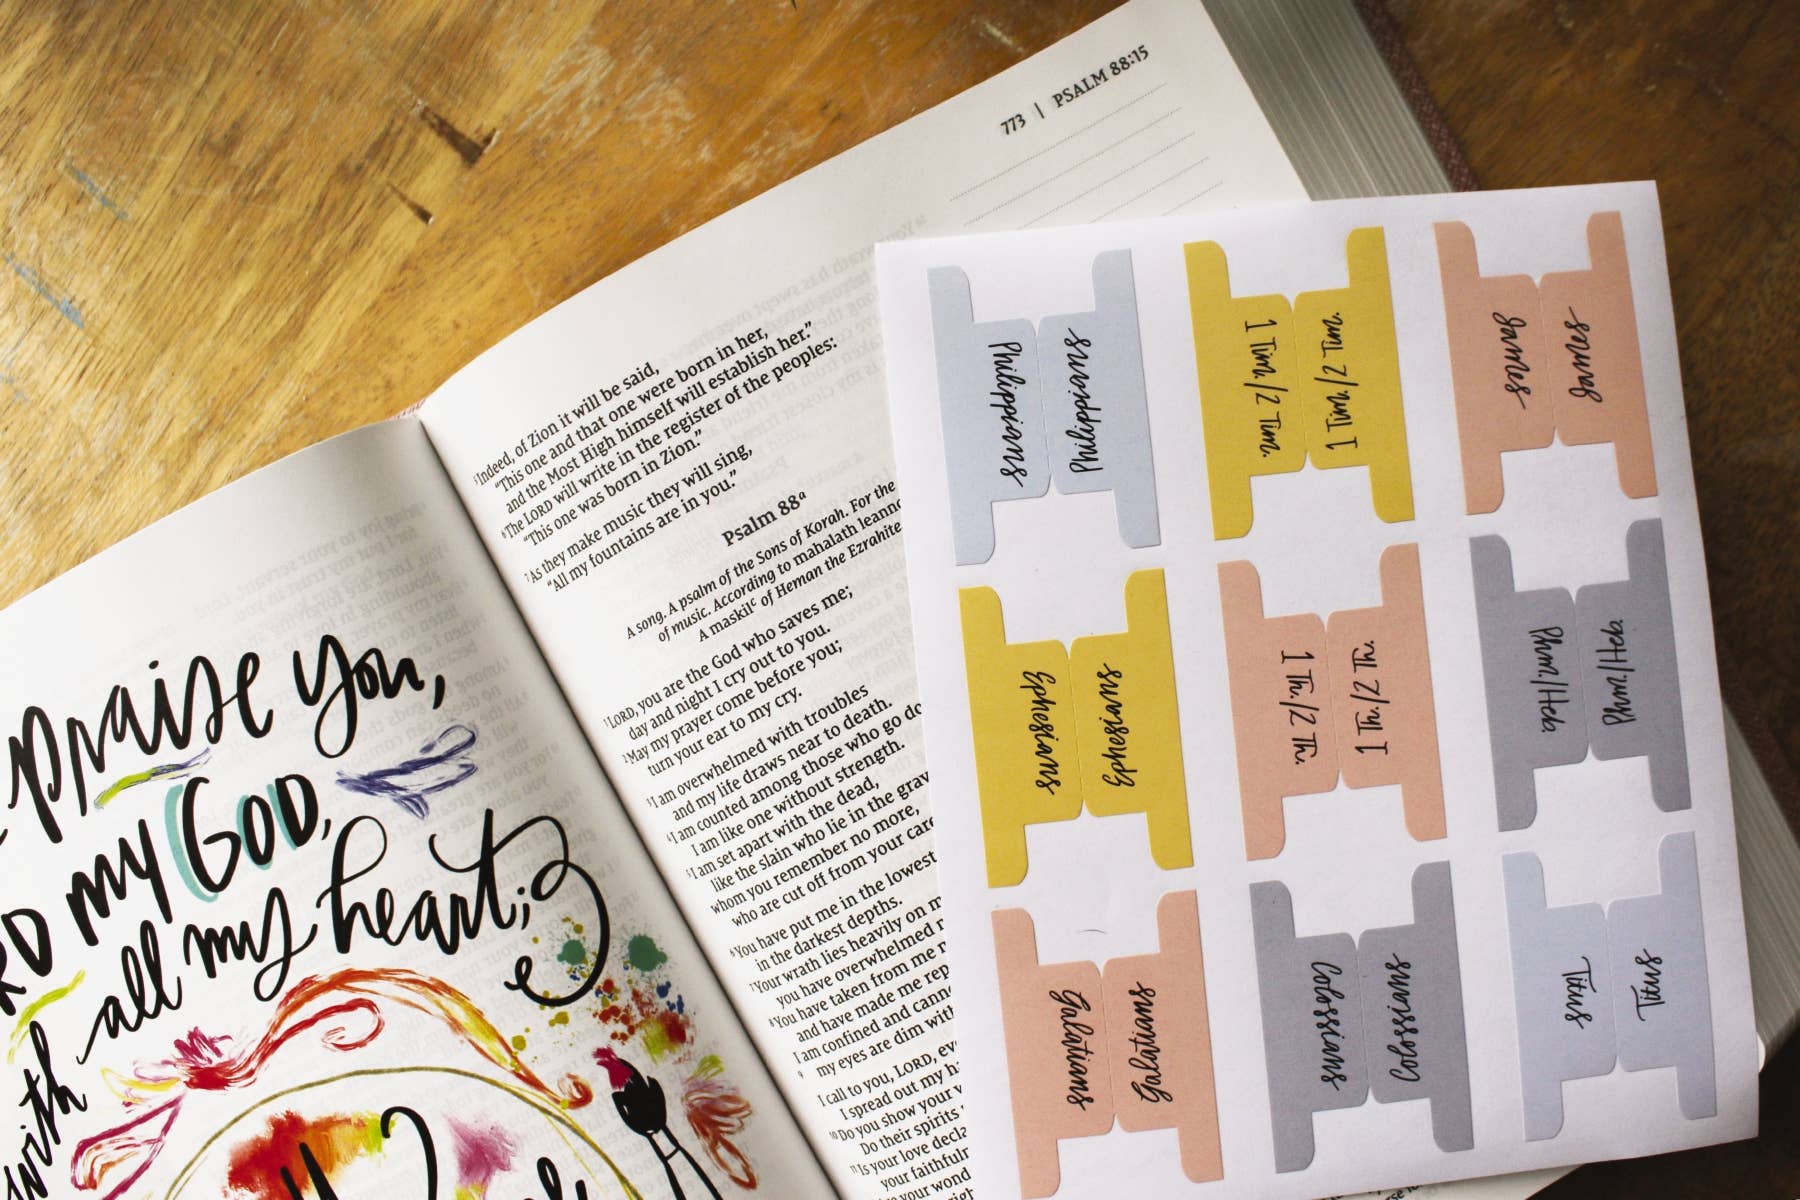 praise you,
my God,
with all my heart;
773 | PSALM 88:15
⁵Indeed, of Zion it will be said,
"This one and that one were born in her,
and the Most High himself will establish her."
⁶The LORD will write in the register of the peoples:
"This one was born in Zion."
⁷As they make music they will sing,
"All my fountains are in you."
Psalm 88ᵃ
A song. A psalm of the Sons of Korah. For the
of music. According to mahalath leanno
A maskilᶜ of Heman the Ezrahite
¹LORD, you are the God who saves me;
day and night I cry out to you.
²May my prayer come before you;
turn your ear to my cry.
³I am overwhelmed with troubles
and my life draws near to death.
⁴I am counted among those who go do
I am like one without strength.
⁵I am set apart with the dead,
like the slain who lie in the grav
whom you remember no more,
who are cut off from your care
⁶You have put me in the lowest
in the darkest depths.
⁷Your wrath lies heavily on m
you have overwhelmed
⁸You have taken from me
and have made me rep
I am confined and canno
⁹my eyes are dim with
I call to you, LORD, eve
I spread out my ha
¹⁰Do you show your
Do their spirits
¹¹Is your love decla
your faithfuln
your wond
Philippians
Philippians
1 Tim./2 Tim.
1 Tim./2 Tim.
James
James
Ephesians
Ephesians
1 Th./2 Th.
1 Th./2 Th.
Phm./Heb.
Phm./Heb.
Galatians
Galatians
Colossians
Colossians
Titus
Titus